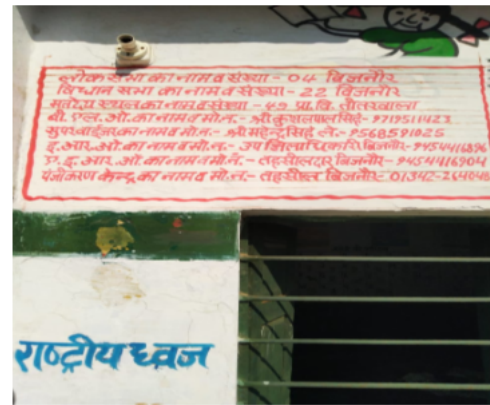 लोक सभा का नाम व संख्या - 04 बिजनौर
विधान सभा का नाम व संख्या - 22 बिजनौर
मतदेय स्थल का नाम व संख्या - 49 प्रा. वि. तीतरवाला
बी. एल. ओ. का नाम व मो.न. - श्री कुशलपाल सिंह - 9719511423
सुपरवाईजर का नाम व मो.न. - श्री महेन्द्र सिंह ले. - 9568591025
इ. आर. ओ. का नाम व मो.न. - उप जिलाधिकारि बिजनौर - 9454416896
ए. इ. आर. ओ. का नाम व मो.नं. - तहसीलदार बिजनौर - 9454416904
पंजीकरण केन्द्र का नाम व मो.न. - तहसील बिजनौर - 01342-264048
राष्ट्रीय ध्वज